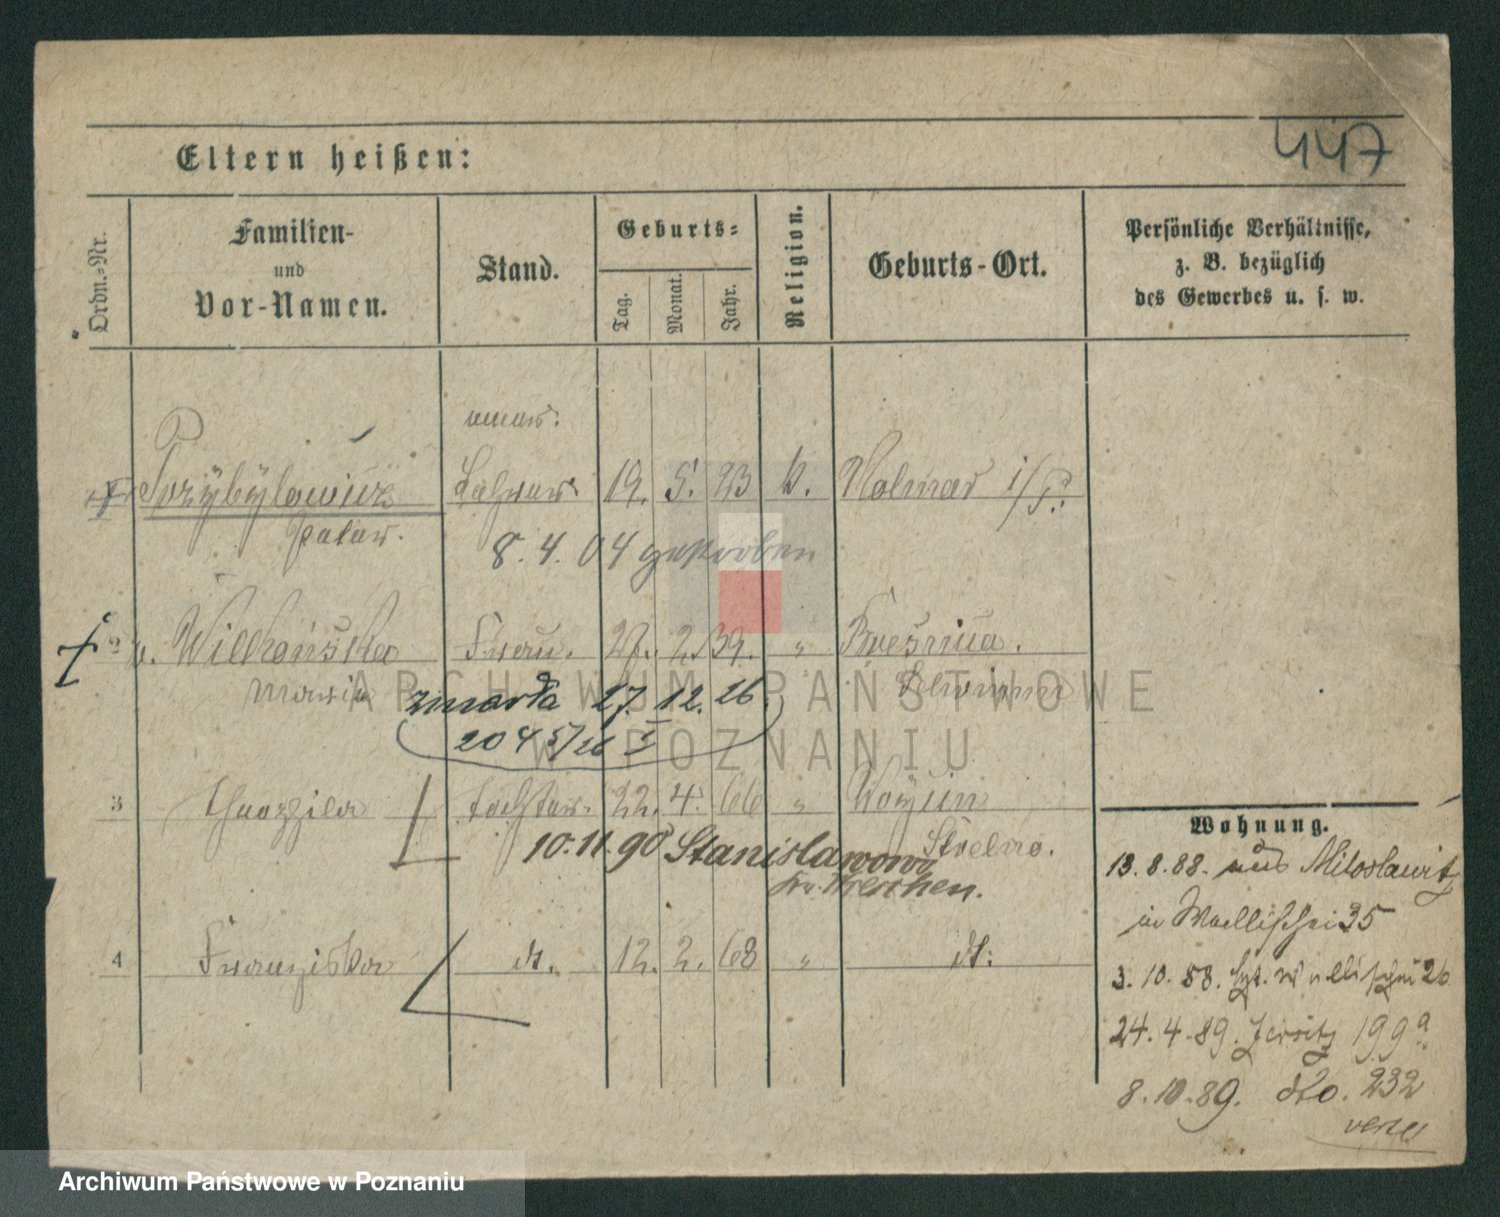 447
Eltern heißen:
Ordn.-Nr.
Familien-
und
Vor-Namen.
Stand.
Geburts-
Tag.
Monat.
Jahr.
Religion.
Geburts-Ort.
Persönliche Verhältnisse,
z. B. bezüglich
des Gewerbes u. s. w.
P
Przybylowicz Lehrer 19. 5. 23 k. Kolmar i/P.
Peter.
8. 4. 04 gestorben
2 v. Wilkonska Frau. 27. 2. 39. "
Maria zmarła 27. 12. 26.
Schrimm
2045/26 I
3 Tochter. 22. 4. 66 " Woycin
10.11.90 Stanislawowo Strelno.
Kr. Wreschen.
4 Franziska dt. 12. 2. 68 " dt.
Wohnung.
13. 8. 88. aus Miloslawitz
in Wallischei 35
3. 10. 88. Wallischei 26
24. 4. 89. Jersitz 199a
8. 10. 89. dto. 232
verte
ARCHIWUM PAŃSTWOWE
W POZNANIU
Archiwum Państwowe w Poznaniu